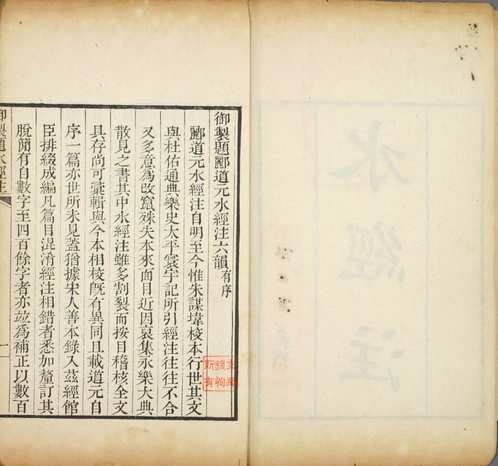 御製題酈道元水經注六韻有序
酈道元水經注自明至今惟朱謀㙔校本行世其文
與杜佑通典樂史太平寰宇記所引經注往往不合
又多意為改竄殊失本來面目近因裒集永樂大典
散見之書其中水經注雖多割裂而按目稽核全文
具存尚可彙輯與今本相校既有異同且載道元自
序一篇亦世所未見蓋猶據宋人善本錄入茲經館
臣排綴成編凡篇目混淆經注相錯者悉加釐訂其
脫簡有自數字至四百餘字者亦竝為補正以數百
御製題水經注
一
水經注